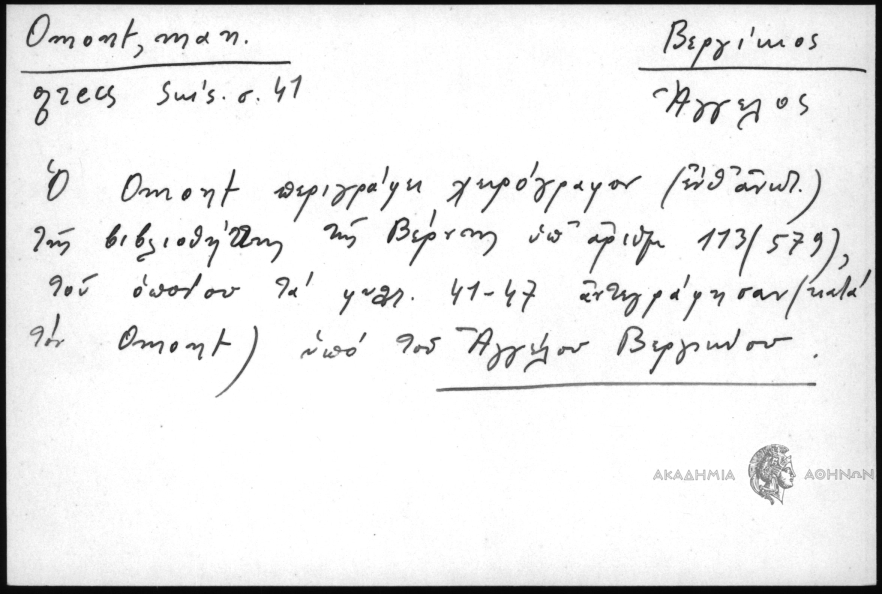 Omont, man.
grecs Suis. σ. 41
Βεργίκιος
Ἄγγελος
Ὁ Omont περιγράφει χειρόγραφον (ἔνθ' ἀνωτ.)
τῆς βιβλιοθήκης τῆς Βέρνης ὑπ' ἀριθμ 113(579),
τοῦ ὁποίου τά φυλλ. 41-47 ἀντεγράφησαν (κατά
τόν Omont) ὑπό τοῦ Ἀγγέλου Βεργικίου.
ΑΚΑΔΗΜΙΑ ΑΘΗΝΩΝ